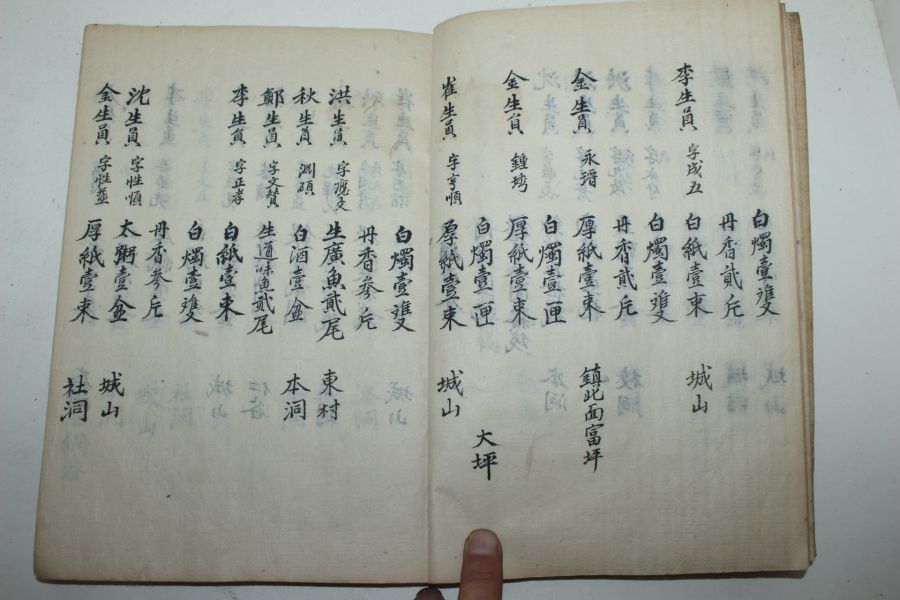 白燭壹雙
丹香貳斤
李生員 字成五 白紙壹束 城山
白燭壹雙
丹香貳斤
金生員 永瑨 厚紙壹束 鎮北面富坪
白燭壹匣
金生員 鍾 厚紙壹束
白燭壹匣 大坪
崔生員 字亨順 厚紙壹束 城山
白燭壹雙
丹香參斤
洪生員 字應文 生廣魚貳尾 東村
秋生員 淵碩 白酒壹盆 本洞
鄭生員 字文贊 生道味魚貳尾
李生員 字正孝 白紙壹束
白燭壹雙
丹香參斤
沈生員 字性順 太粥壹盆 城山
金生員 字性益 厚紙壹束 社洞